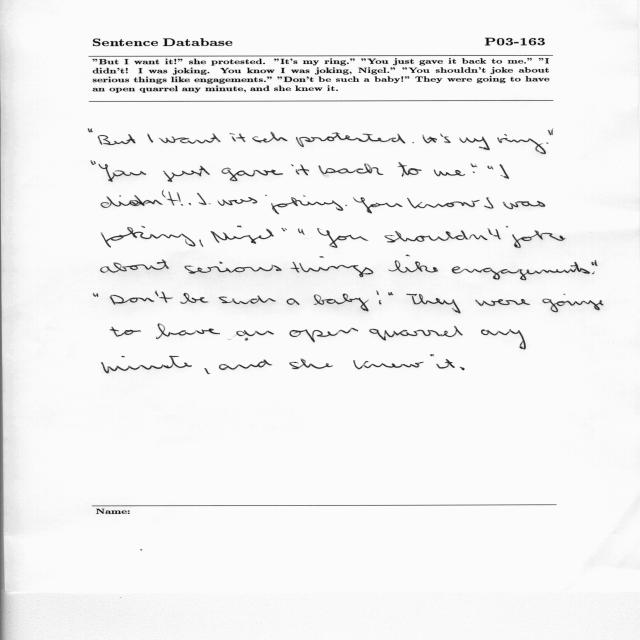 Sentence Database P03-163
"But I want it!" she protested. "It's my ring." "You just gave it back to me." "I
didn't! I was joking. You know I was joking, Nigel." "You shouldn't joke about
serious things like engagements." "Don't be such a baby!" They were going to have
an open quarrel any minute, and she knew it.
"But I want it seh protested. It's my ring."
"You just gave it back to me." "I
didn't!. I was joking. You know I was
joking, Nigel" "You shouldn't joke
about serious things like engagements."
"Don't be such a baby!" They were going
to have an open quarrel any
minute, and she knew it.
Name: